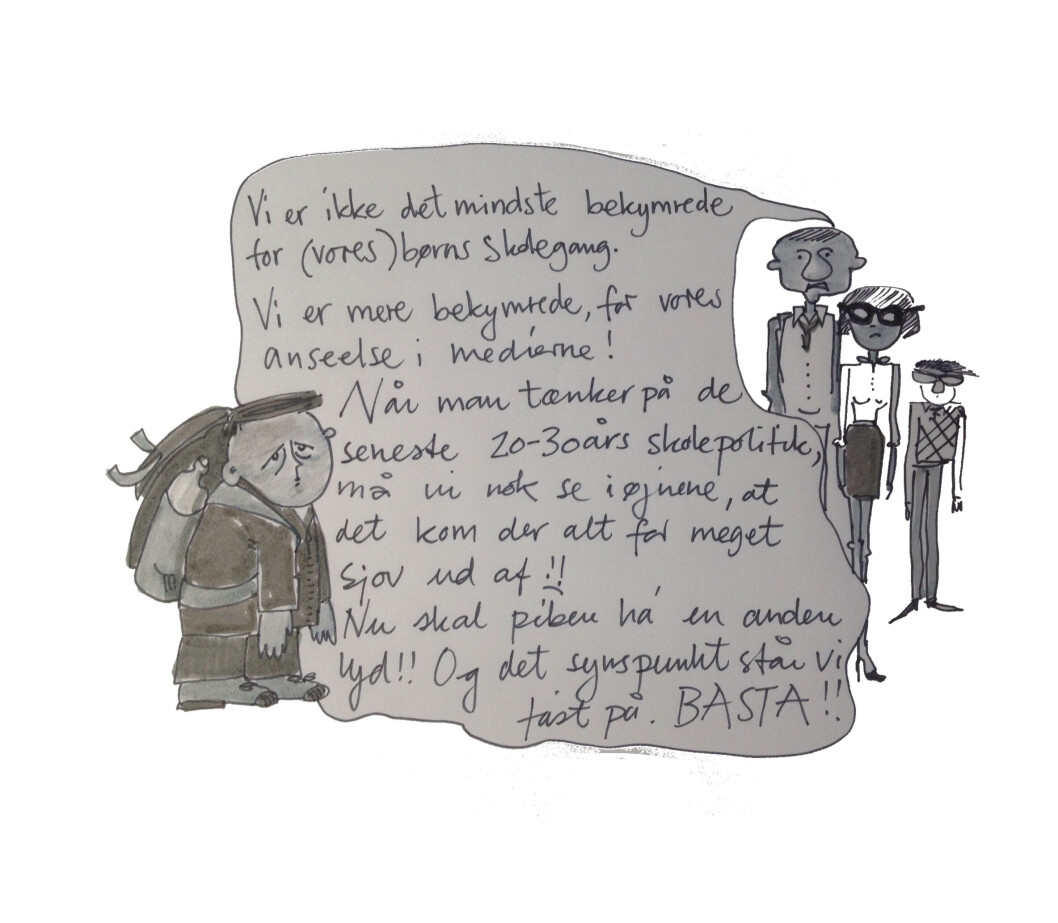 Vi er ikke det mindste bekymrede
for (vores) børns Skolegang.
Vi er mere bekymrede, for vores
anseelse i medierne!
Når man tænker på de
seneste 20-30års skolepolitik,
må vi nok se i øjnene, at
det kom der alt for meget
sjov ud af!!
Nu skal piben ha' en anden
lyd!! Og det synspunkt står vi
fast på. BASTA!!